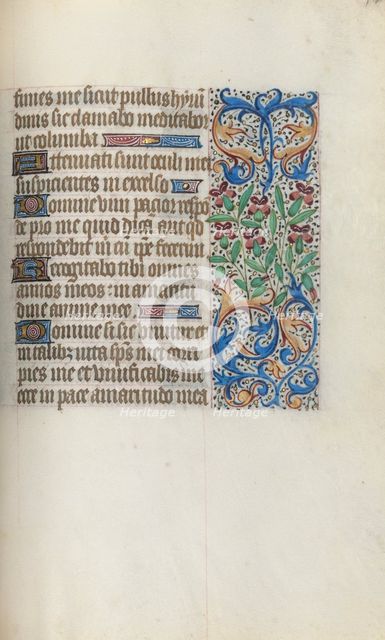 fimes me sicut pullus hyrun
dinis sic clamabo meditabor
ut columba
Attenuati sunt oculi mei
suspicientes in excelso
Domine vim pacior respo
de pro me quid dicam aut qd
respondebit michi cum fecerim
Recogitabo tibi omnes
annos meos in amaritu
dine anime mee
Domine si sic vivitur et
in talibus vita spus mei corri
pies me et vivificabis me
ecce in pace amaritudo mea
Heritage
Heritage
Heritage
Heritage